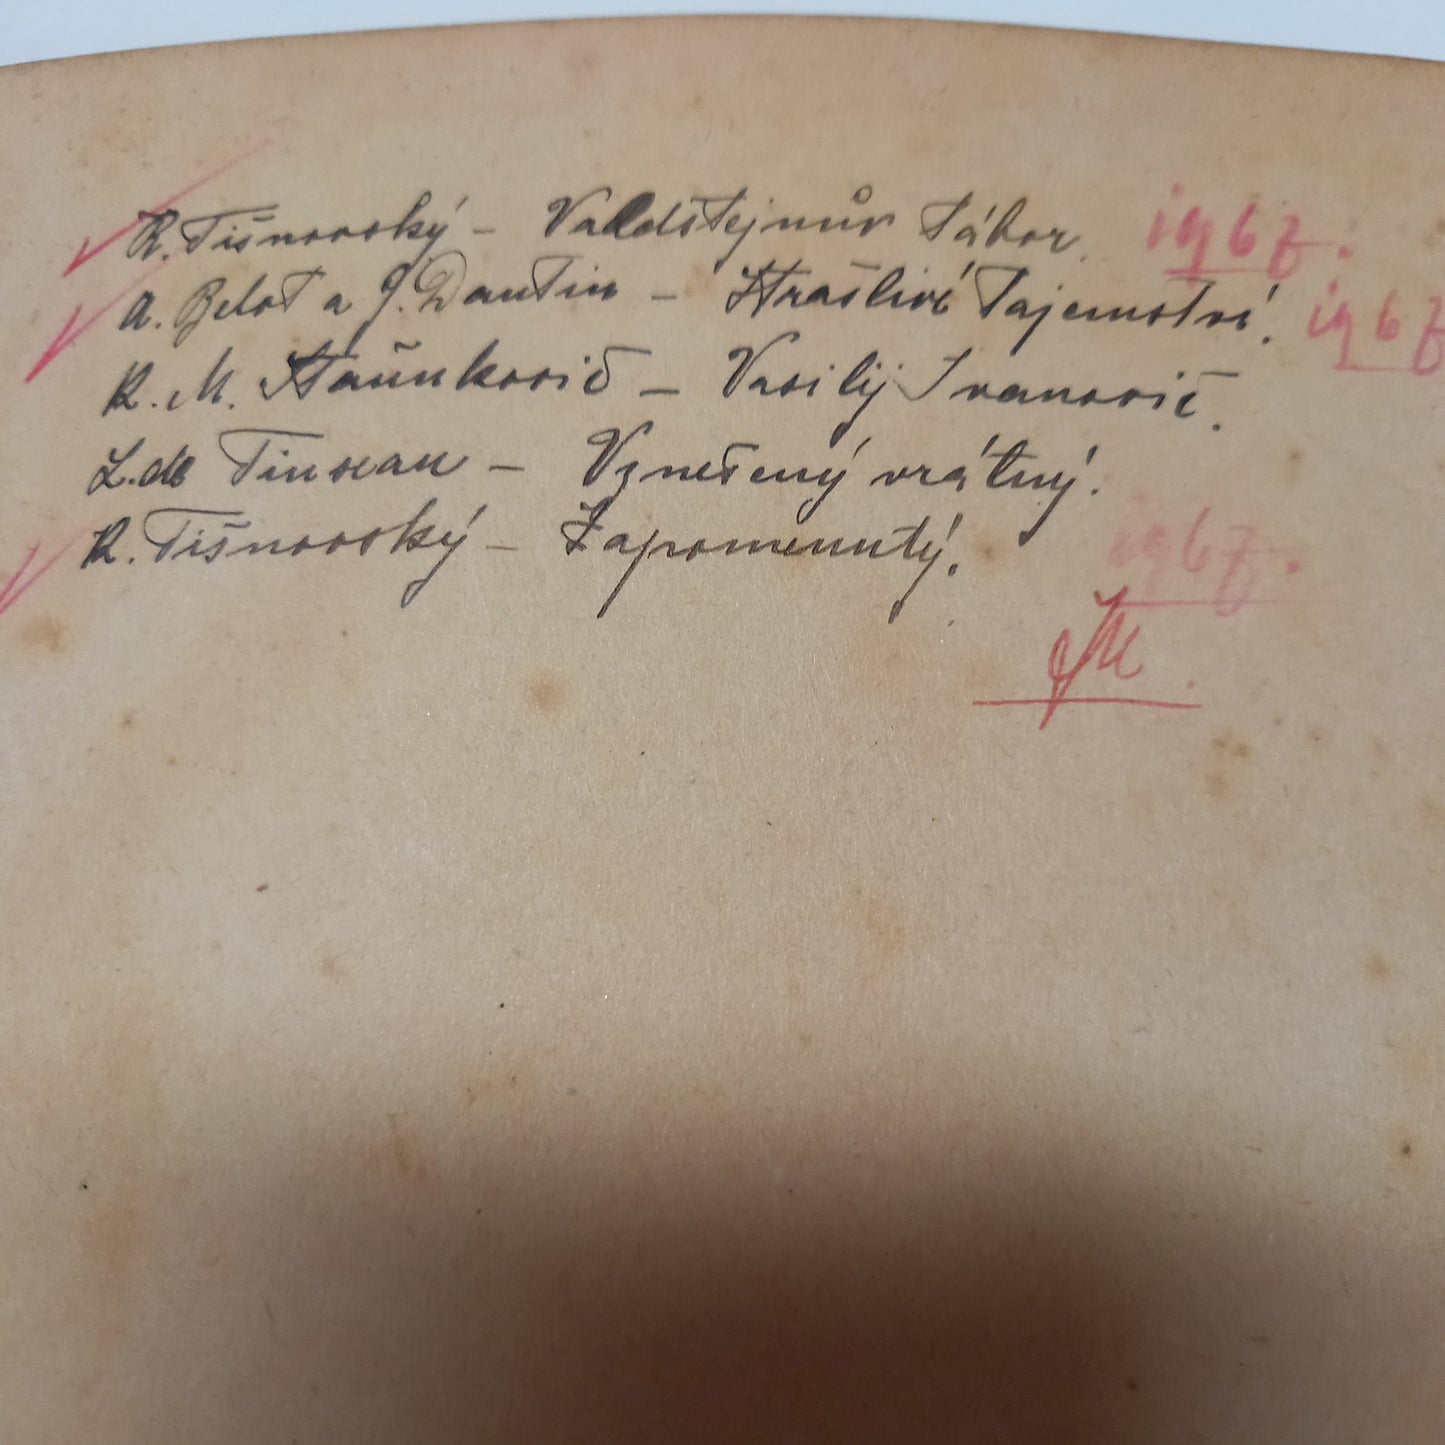 R. Tišnovský – Valdštejnův tábor. 1967.
A. Belot a J. Dautin – Strašlivé Tajemství. 1967
R. M. Staňkovič – Vasilij Ivanovič.
L. de Tinseau – Vznešený vrátný.
R. Tišnovský – Zapomenutý. 1967.